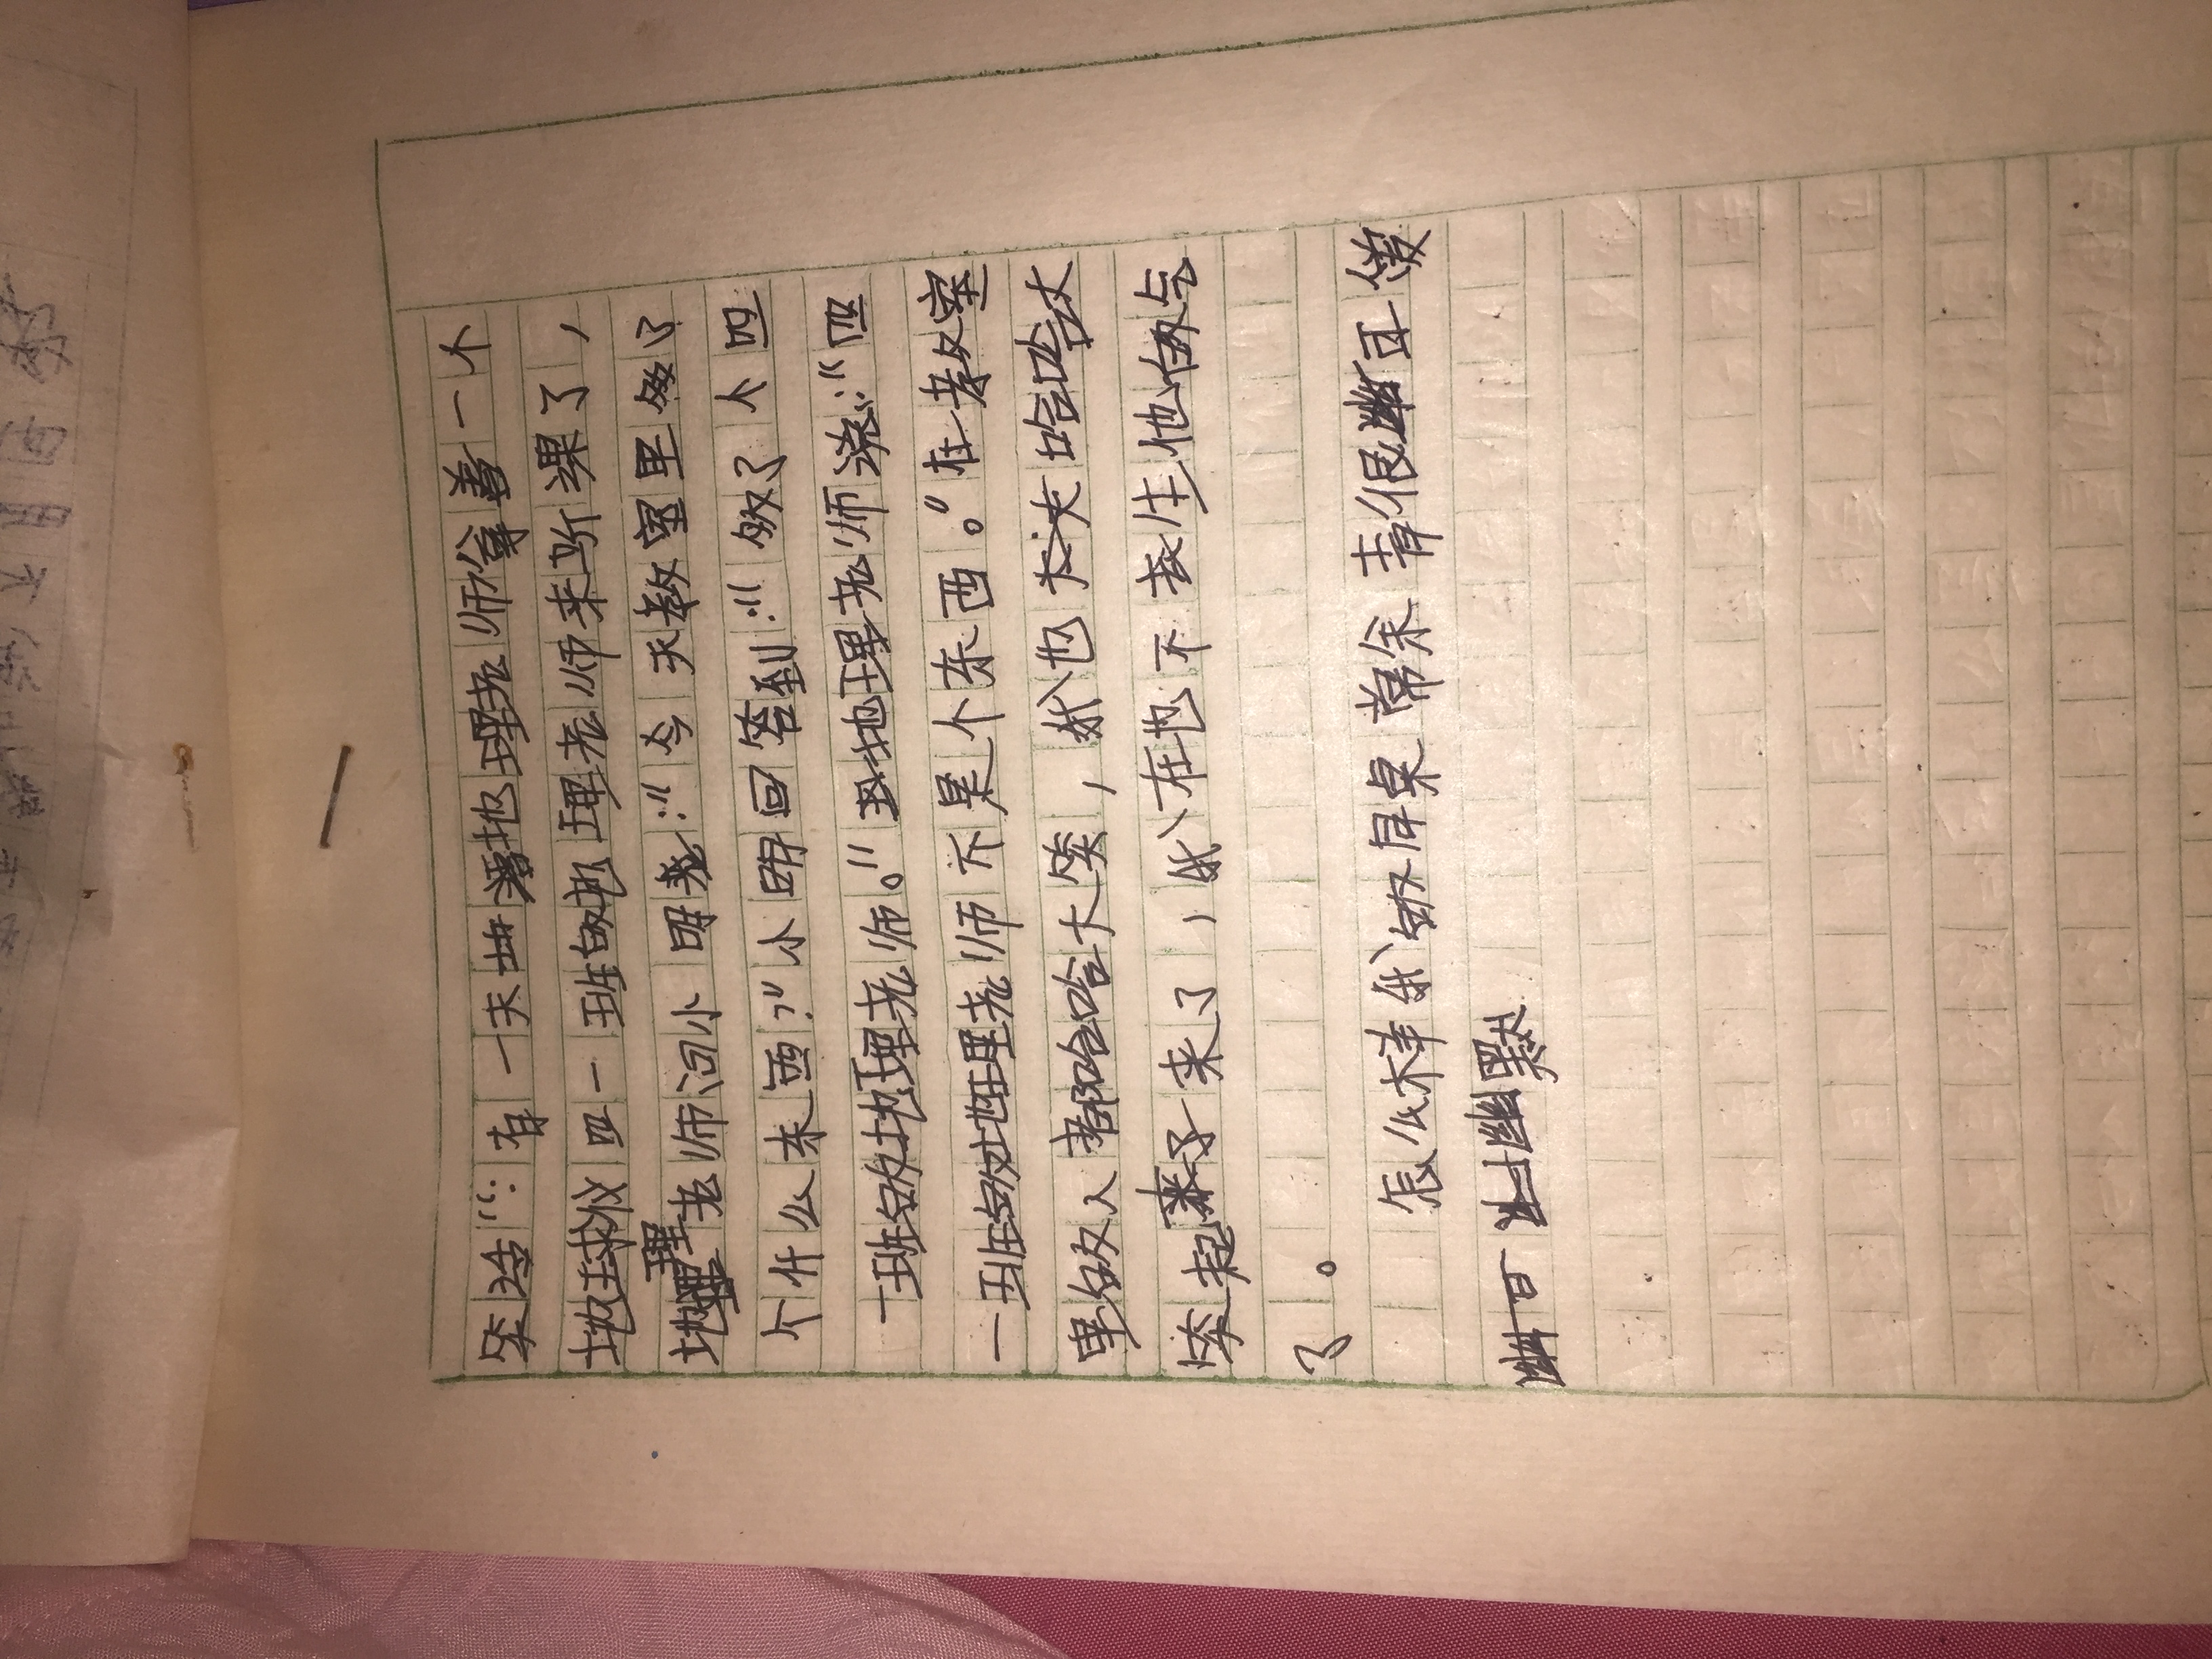 笑话":有一天地理老师拿着一个
地球仪四一班的地理老师来听课了,
地理老师问小明说:"今天教室里多了
个什么东西?"小明回答到:"多了个四
一班的地理老师。"地理老师说:"四
一班的地理老师不是个东西。"在教室
里的人都哈哈大笑,我也大大哈哈大
笑起来了,我在也不去生他的气
了。
怎么样我的同桌常余青很幽耳傻
百 幽默